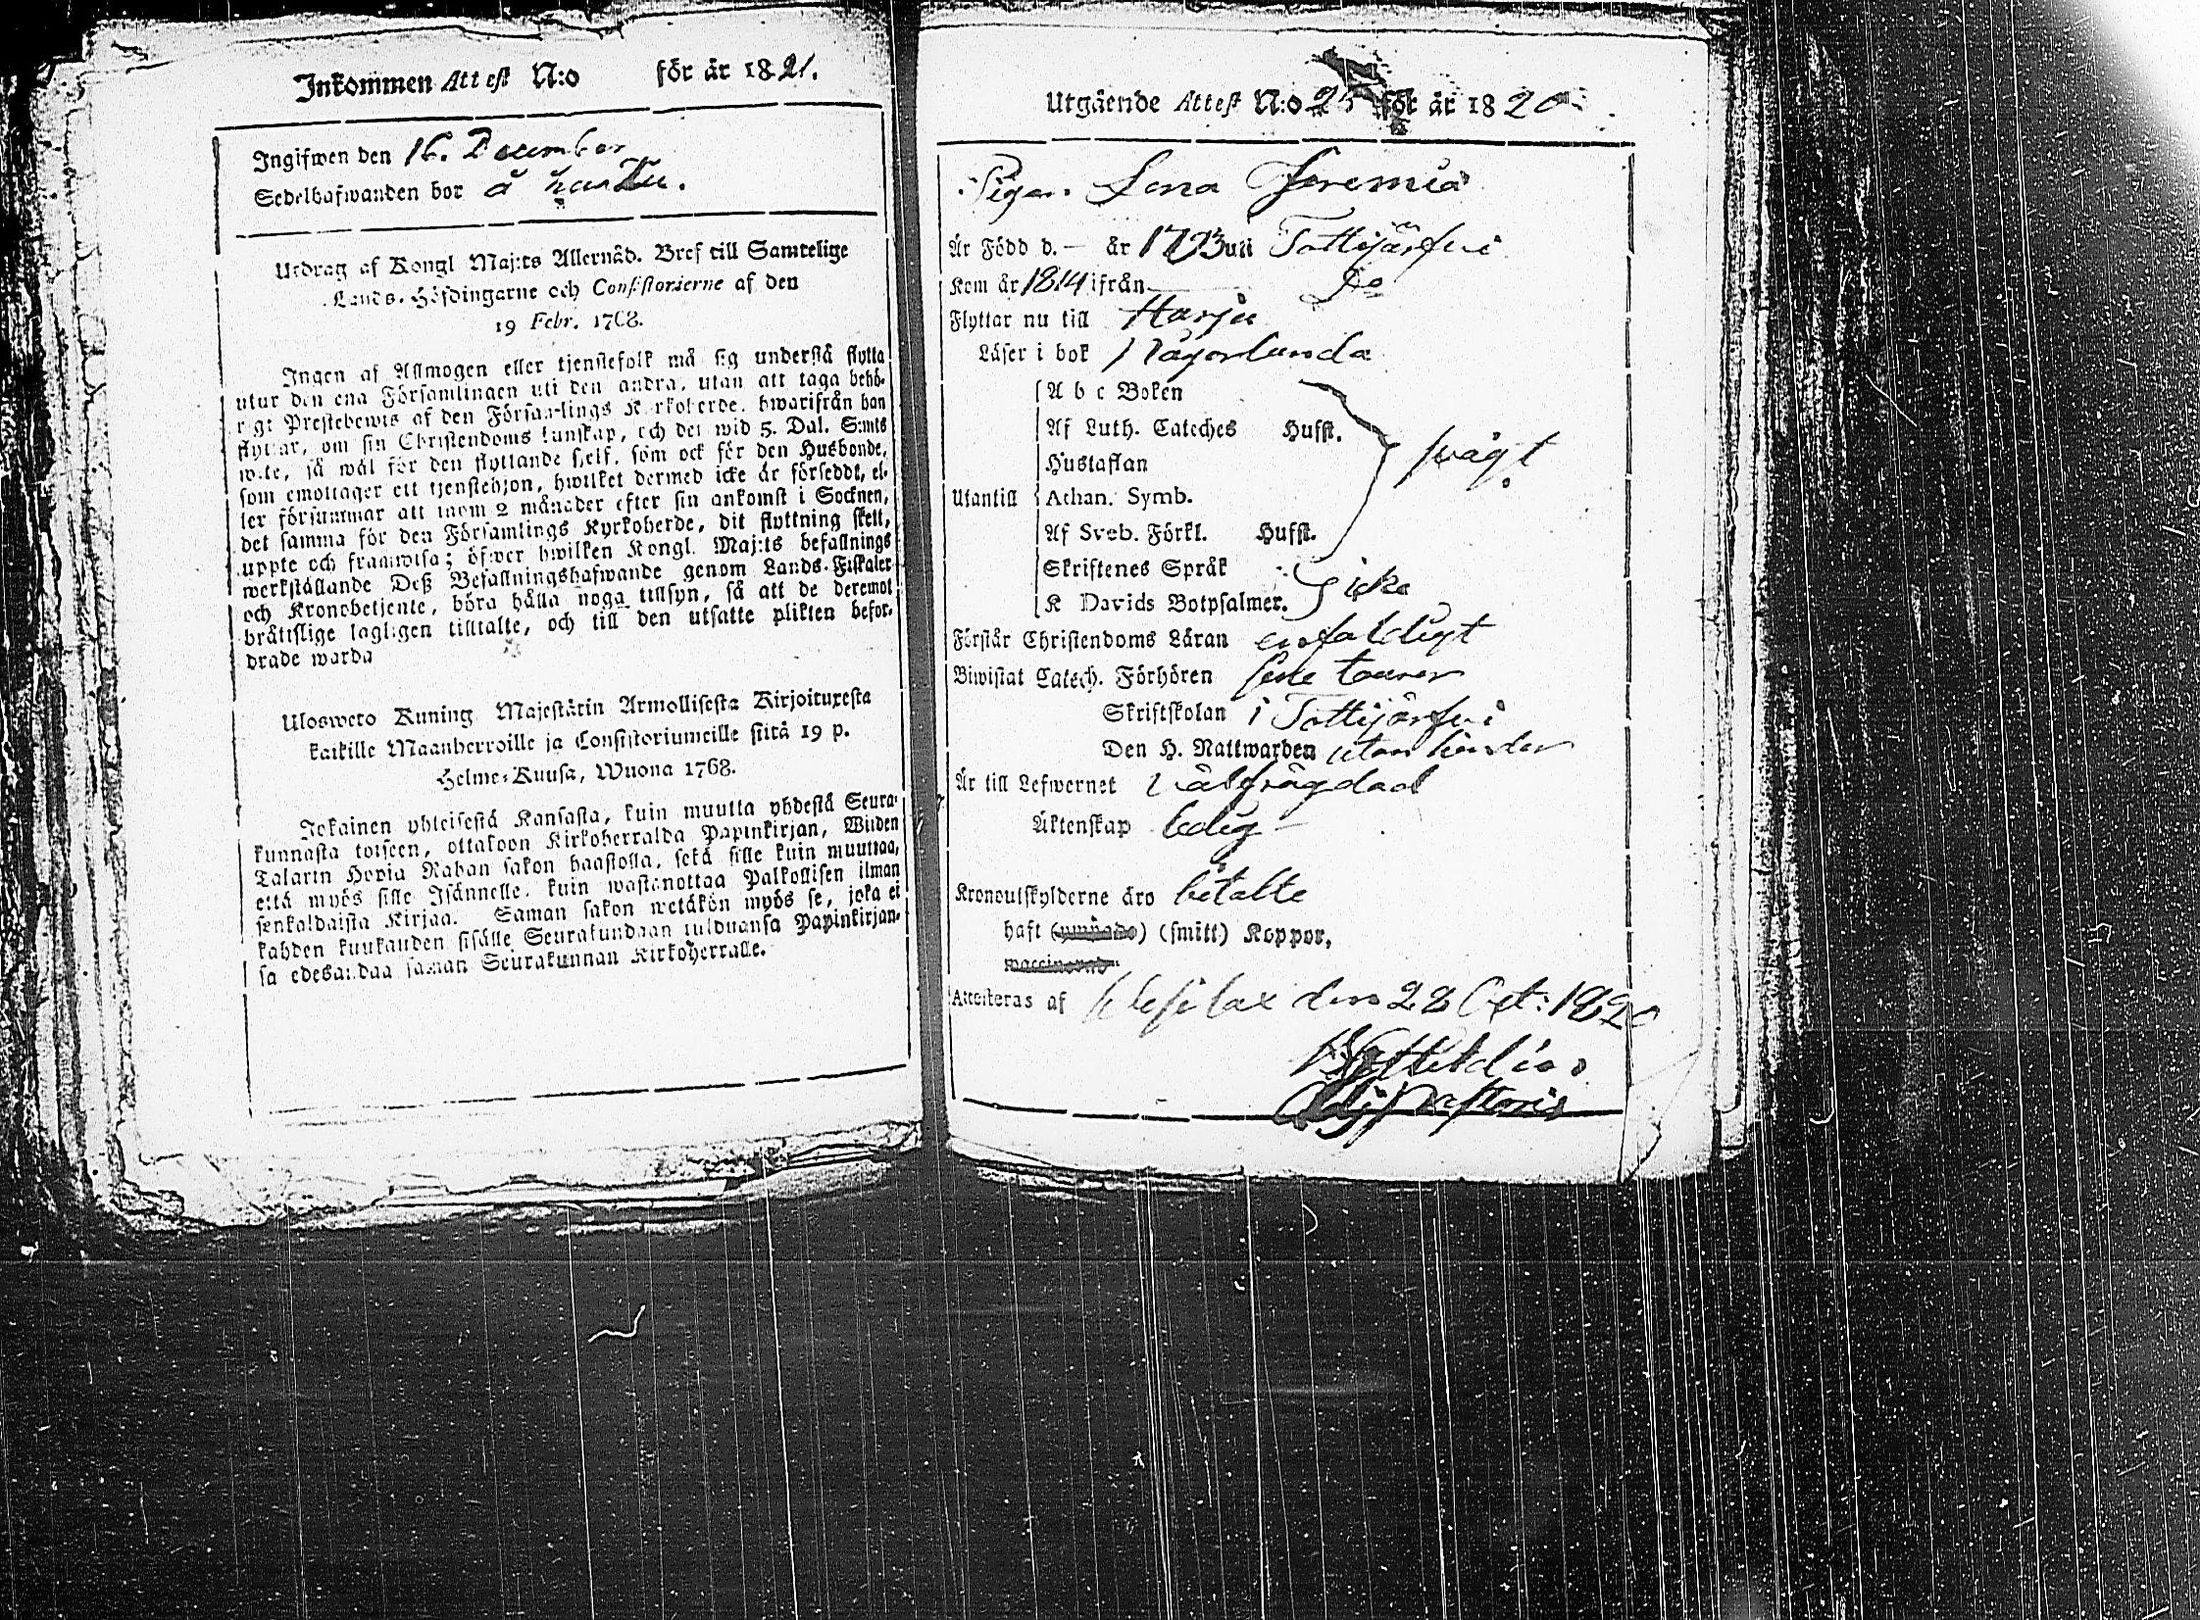 Inkommen Attest N:o för år 1821.
Ingifwen den 16. December
Sedelhafwanden bor å
Utdrag af Kongl Maj:ts Allernåd. Bref till Samtelige
Lands-Höfdingarne och Consistorierne af den
19 Febr. 1768.
Ingen af Allmogen eller tjenstefolk må sig understå flytta
utur den ena Församlingen uti den andra, utan att taga behö-
rigt Prestebewis af den Församlings Kyrkoherde, hwarifrån han
flyttar, om sin Christendoms kunskap, och det wid 5. Dal. S:mts
wite, så wäl för den flyttande sjelf, som ock för den Husbonde,
som emottager ett tjenstehjon, hwilket dermed icke är försedt, el-
ler försummar att inom 2 månader efter sin ankomst i Socknen,
det samma för den Församlings Kyrkoherde, dit flyttning skett,
uppte och framwisa; öfwer hwilken Kongl. Maj:ts befallnings
werkställande Deß Befallningshafwande genom Lands-Fiskaler
och Kronobetjente, böra hålla noga tillsyn, så att de deremot
bråttslige lagligen tilltalte, och till den utsatte plikten befor-
drade warda
Ulosweto Kuning Majestätin Armollisesta Kirjoituxesta
kaikille Maanherroille ja Consistoriumeille siitä 19 p.
Helme-Kuusa, Wuona 1768.
Jokainen yhteisestä Kansasta, kuin muutta yhdestä Seura-
kunnasta toiseen, ottakoon Kirkoherralda Papinkirjan, Wiiden
Talarin Hopia Rahan sakon haastolla, sekä sille kuin muuttaa,
että myös sille Isännelle, kuin wastanottaa Palkollisen ilman
senkaldaista Kirjaa. Saman sakon wetäkön myös se, joka ei
kahden kuukauden sisälle Seurakundaan tulduansa Papinkirjan-
sa edesandaa saman Seurakunnan Kirkoherralle.
Utgående Attest N:o 25 för år 1820
Pigan Lena Jeremiæ
Är Född d. — år 1793 uti Tottijärfvi
Kom år 1814 ifrån Do
Flyttar nu till Harju
Läser i bok Någorlunda
A b c Boken
Af Luth. Cateches Husst.
Hustaflan svagt
Utantill Athan. Symb.
Af Sveb. Förkl. Husst.
Skriftenes Språk
K Davids Botpsalmer. icke
Förstår Christendoms Läran enfaldigt
Biwistat Catech. Förhören
Skriftskolan i Tottijärfvi
Den H. Nattwarden utan hinder
Är till Lefwernet välfrägdad
Äktenskap ledig
Kronoutskylderne äro betalte
haft (ympade) (smitt) Koppor,
waccinerad
Attesteras af Wesilax den 28 Oct: 1820
Adj: Pastoris